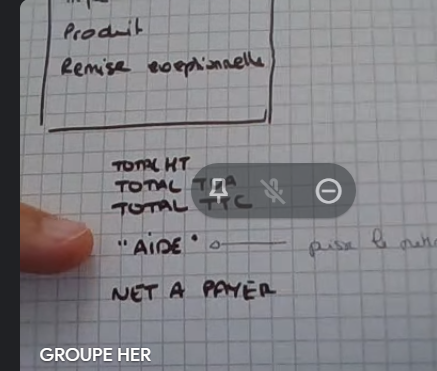 Produit
Remise exceptionnelle
TOTAL HT
TOTAL TVA
TOTAL TTC
"AIDE"
NET A PAYER
GROUPE HER